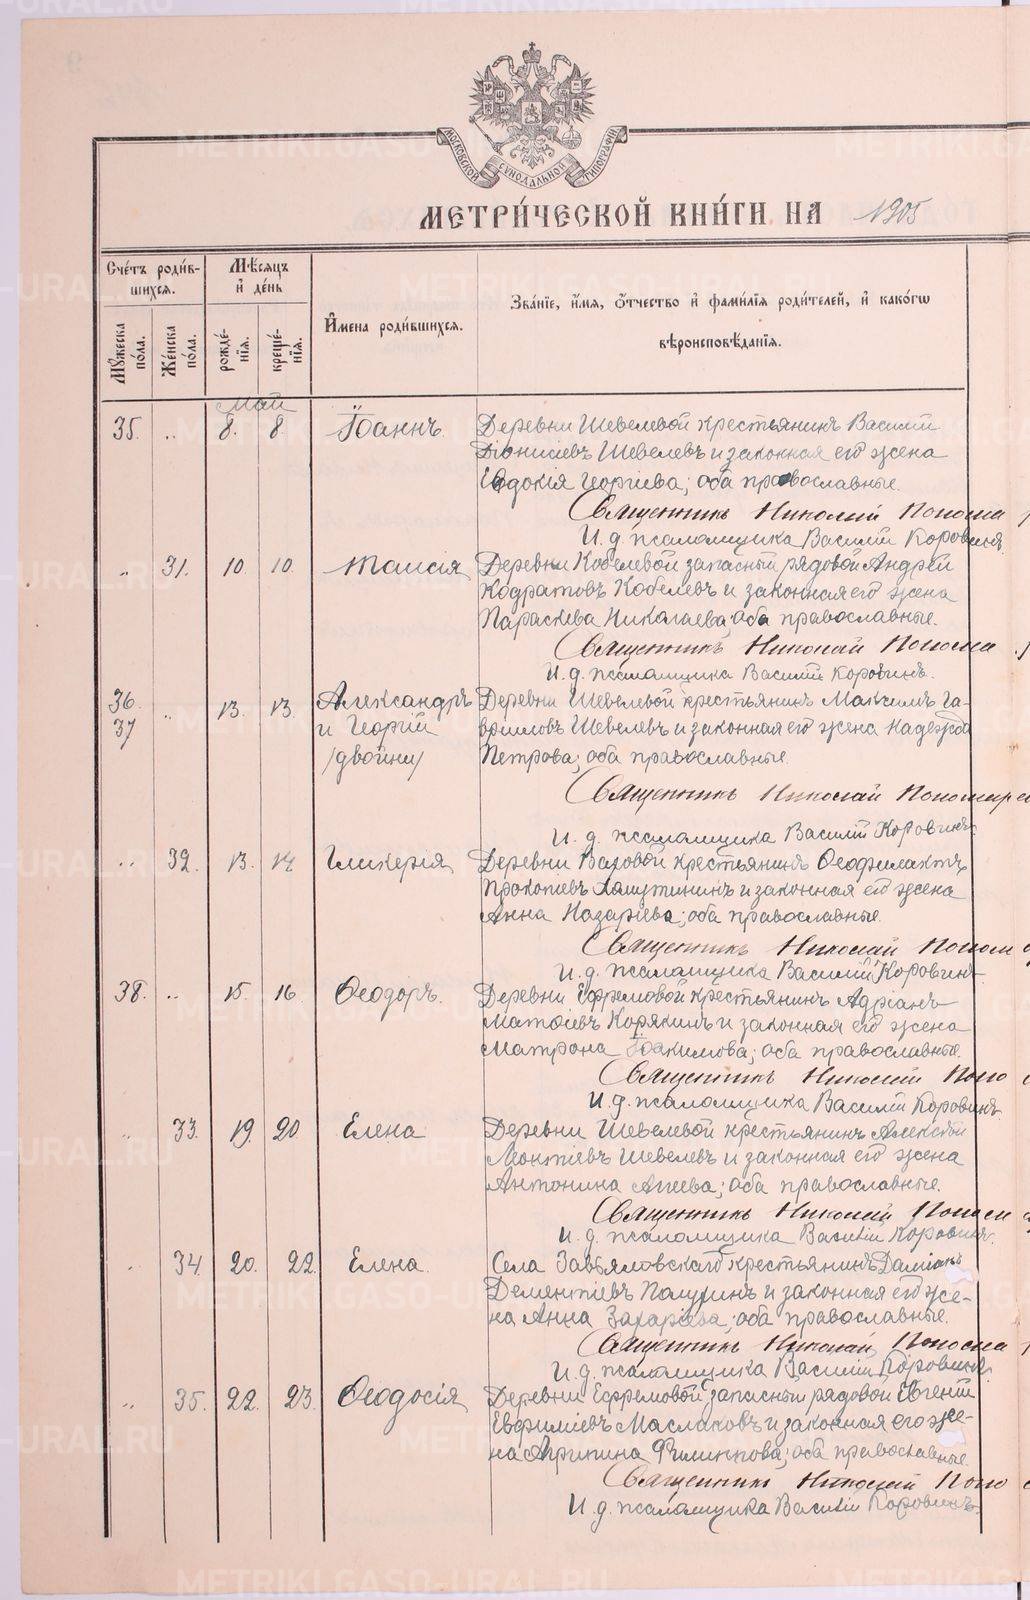 МОСКОВСКОЙ СѴНОДАЛЬНОЙ ТИПОГРАФІИ
МЕТРИ́ЧЕСКОЙ КНИ́ГИ НА 1905
Сче́тъ роди́в-
шихся.
Мѣ́сяцъ
и҆ де́нь
И҆мена роди́вшихся.
Зва́нїе, и҆́мя, ѻ҆́тчество и҆ фами́лїя роди́телей, и҆ како́гѡ
вѣроисповѣ́данїя.
Мꙋ́жеска по́ла.
Же́нска по́ла.
рожде́-нїя.
креще́-нїя.
Май
35. „ 8. 8. Іоаннъ. Деревни Шевелевой крестьянинъ Василій
Діонисіевъ Шевелевъ и законная его жена
Евдокія Георгіева; оба православные.
Священникъ Николай Понома
И. д. псаломщика Василій Коровинъ.
„ 31. 10. 10. Таисія Деревни Кобелевой запасный рядовой Андрей
Кодратовъ Кобелевъ и законная его жена
Параскева Николаева; оба православные.
Священникъ Николай Понома
И. д. псаломщика Василій Коровинъ.
36. 37 „ 13. 13. Александръ Деревни Шевелевой крестьянинъ Максимъ Га-
и Георгій вриловъ Шевелевъ и законная его жена Надежда
/двойни/ Петрова; оба православные.
Священникъ Николай Пономаре
И. д. псаломщика Василій Коровинъ.
„ 32. 13. 14 Гликерія Деревни Вазовой крестьянинъ Ѳеофилактъ
Прокопіевъ Лапутинъ и законная его жена
Анна Назаріева; оба православные.
Священникъ Николай Поном
И. д. псаломщика Василій Коровинъ
38. „ 15. 16 Ѳеодоръ. Деревни Ефремовой крестьянинъ Адріанъ
Матѳіевъ Корякинъ и законная его жена
Матрона Іоакимова; оба православные.
Священникъ Николай Поно
И. д. псаломщика Василій Коровинъ
„ 33. 19. 20 Елена Деревни Шевелевой крестьянинъ Алексѣй
Леонтіевъ Шевелевъ и законная его жена
Антонина Агеева; оба православные.
Священникъ Николай Понома
И. д. псаломщика Василій Коровинъ.
„ 34. 20. 22. Елена. Села Завьяловскаго крестьянинъ Даміанъ
Дементіевъ и законная его же-
на Анна Захаріева; оба православные.
Священникъ Николай Понома
И. д. псаломщика Василій Коровинъ.
„ 35. 22. 23. Ѳеодосія Деревни Ефремовой запасный рядовой Евгеній
Евфиміевъ Маслаковъ и законная его же-
на Агрипина Филиппова; оба православные.
Священникъ Николай Поно
И. д. псаломщика Василій Коровинъ.
METRIKI.GASO-URAL.RU